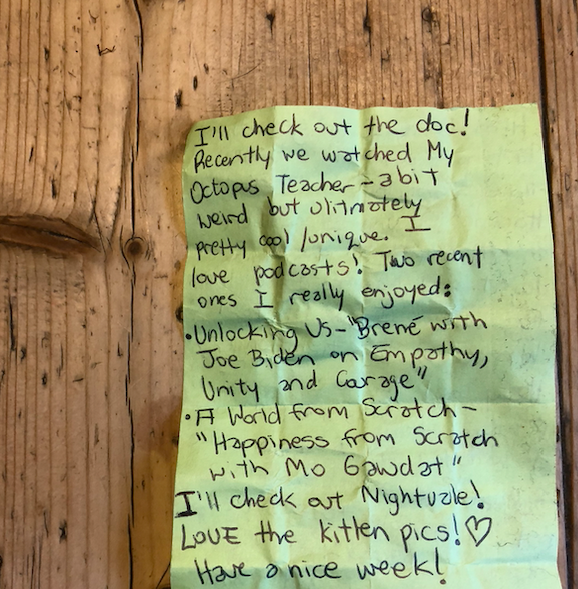 I'll check out the doc!
Recently we watched My
Octopus Teacher - a bit
weird but ulitmately
pretty cool/unique. I
love podcasts! Two recent
ones I really enjoyed:
•Unlocking Us - "Brené with
Joe Biden on Empathy,
Unity and Corage"
•A World from Scratch -
"Happiness from Scratch
with Mo Gawdat"
I'll check out Nightvale!
LOVE the kitten pics!♡
Have a nice week!